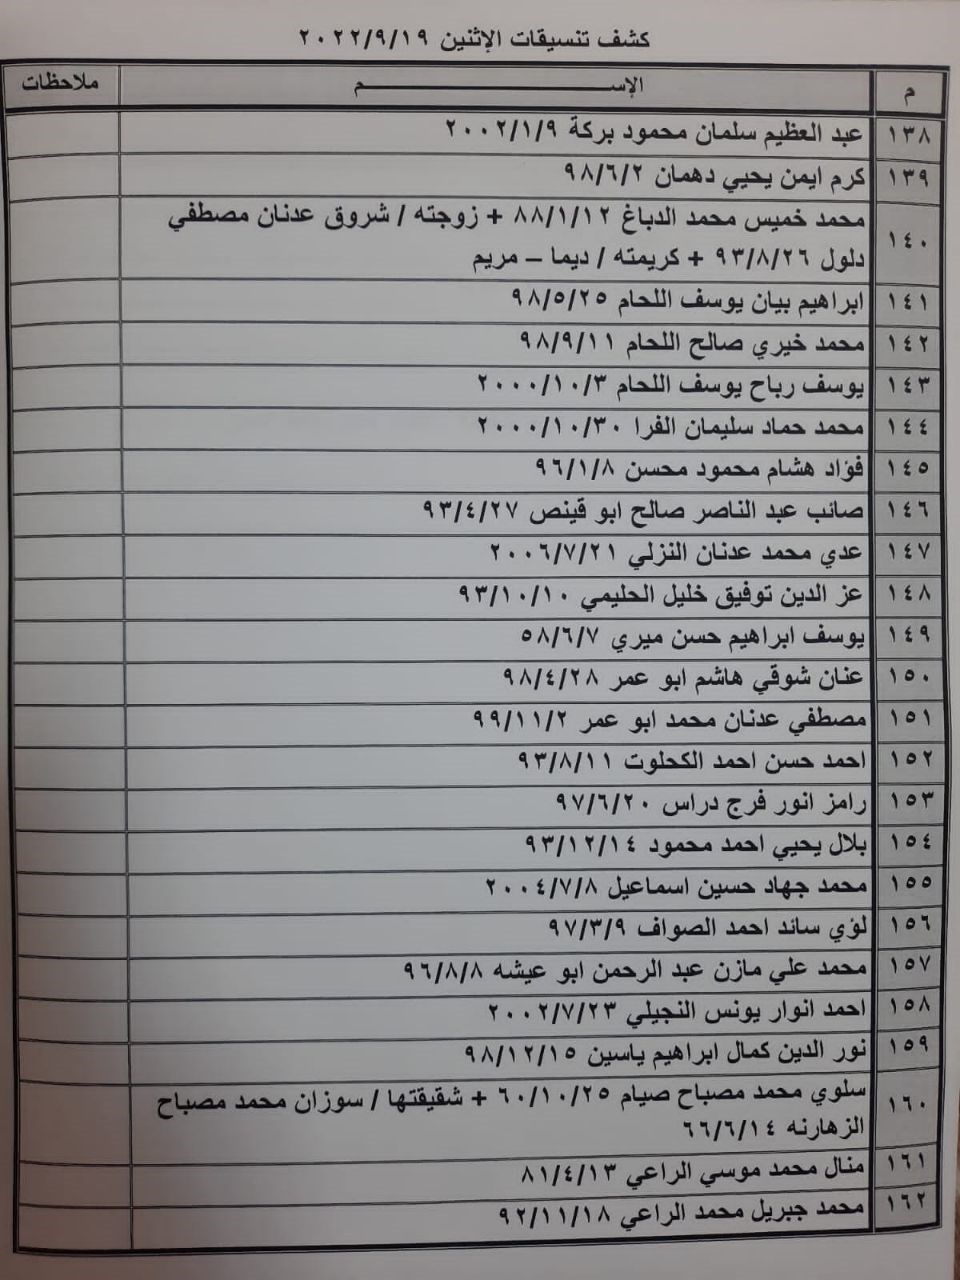 كشف تنسيقات الإثنين ٢٠٢٢/٩/١٩
م الإســـــــــم ملاحظات
١٣٨ عبد العظيم سلمان محمود بركة ٢٠٠٢/١/٩
١٣٩ كرم ايمن يحيي دهمان ٩٨/٦/٢
١٤٠ محمد خميس محمد الدباغ ٨٨/١/١٢ + زوجته / شروق عدنان مصطفي
دلول ٩٣/٨/٢٦ + كريمته / ديما – مريم
١٤١ ابراهيم بيان يوسف اللحام ٩٨/٥/٢٥
١٤٢ محمد خيري صالح اللحام ٩٨/٩/١١
١٤٣ يوسف رباح يوسف اللحام ٢٠٠٠/١٠/٣
١٤٤ محمد حماد سليمان الفرا ٢٠٠٠/١٠/٣٠
١٤٥ فؤاد هشام محمود محسن ٩٦/١/٨
١٤٦ صائب عبد الناصر صالح ابو قينص ٩٣/٤/٢٧
١٤٧ عدي محمد عدنان النزلي ٢٠٠٦/٧/٢١
١٤٨ عز الدين توفيق خليل الحليمي ٩٣/١٠/١٠
١٤٩ يوسف ابراهيم حسن ميري ٥٨/٦/٧
١٥٠ عنان شوقي هاشم ابو عمر ٩٨/٤/٢٨
١٥١ مصطفي عدنان محمد ابو عمر ٩٩/١١/٢
١٥٢ احمد حسن احمد الكحلوت ٩٣/٨/١١
١٥٣ رامز انور فرج دراس ٩٧/٦/٢٠
١٥٤ بلال يحيي احمد محمود ٩٣/١٢/١٤
١٥٥ محمد جهاد حسين اسماعيل ٢٠٠٤/٧/٨
١٥٦ لؤي سائد احمد الصواف ٩٧/٣/٩
١٥٧ محمد علي مازن عبد الرحمن ابو عيشه ٩٦/٨/٨
١٥٨ احمد انوار يونس النجيلي ٢٠٠٢/٧/٢٣
١٥٩ نور الدين كمال ابراهيم ياسين ٩٨/١٢/١٥
١٦٠ سلوي محمد مصباح صيام ٦٠/١٠/٢٥ + شقيقتها / سوزان محمد مصباح
الزهارنه ٦٦/٦/١٤
١٦١ منال محمد موسي الراعي ٨١/٤/١٣
١٦٢ محمد جبريل محمد الراعي ٩٢/١١/١٨